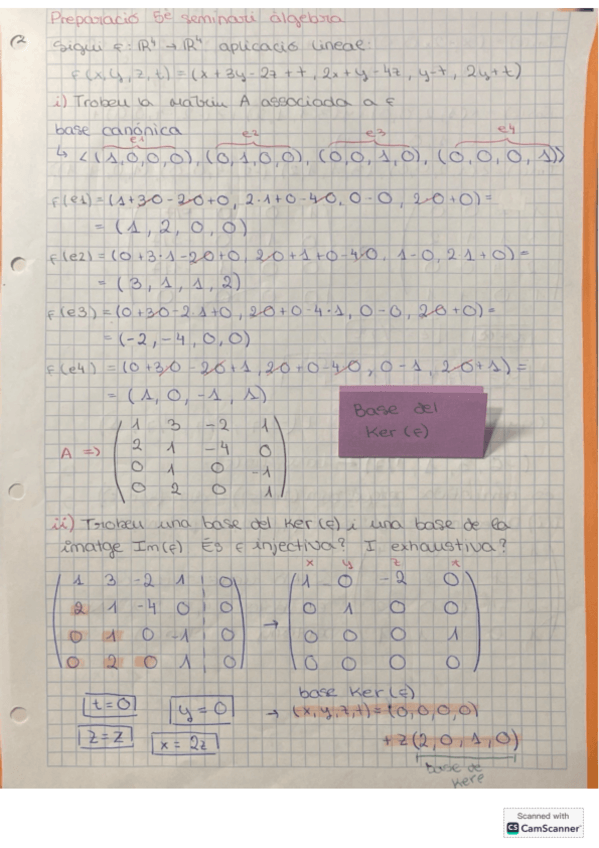 Preparació 5è seminari àlgebra
Sigui f: ℝ⁴ → ℝ⁴ aplicació lineal:
f(x,y,z,t) = (x+3y-2z+t, 2x+y-4z, y-t, 2y+t)
i) Trobeu la matriu A associada a f
base canónica
e1 e2 e3 e4
↳ <(1,0,0,0), (0,1,0,0), (0,0,1,0), (0,0,0,1)>
f(e1) = (1+3·0-2·0+0, 2·1+0-4·0, 0-0, 2·0+0) =
= (1, 2, 0, 0)
f(e2) = (0+3·1-2·0+0, 2·0+1+0-4·0, 1-0, 2·1+0) =
= (3, 1, 1, 2)
f(e3) = (0+3·0-2·1+0, 2·0+0-4·1, 0-0, 2·0+0) =
= (-2, -4, 0, 0)
f(e4) = (0+3·0-2·0+1, 2·0+0-4·0, 0-1, 2·0+1) =
= (1, 0, -1, 1)
Base del
Ker (f)
1 3 -2 1
2 1 -4 0
A =>
0 1 0 -1
0 2 0 1
ii) Trobeu una base del Ker(f) i una base de la
imatge Im(f) És f injectiva? I exhaustiva?
x y z
1 3 -2 1 | 0 1 0 -2 0
2 1 -4 0 | 0 0 1 0 0
0 1 0 -1 | 0 → 0 0 0 1
0 2 0 1 | 0 0 0 0 0
base Ker(f)
t=0 y=0 → (x,y,z,t) = (0,0,0,0)
z=z x=2z +z(2,0,1,0)
base de
Kerf
Scanned with
CS CamScanner